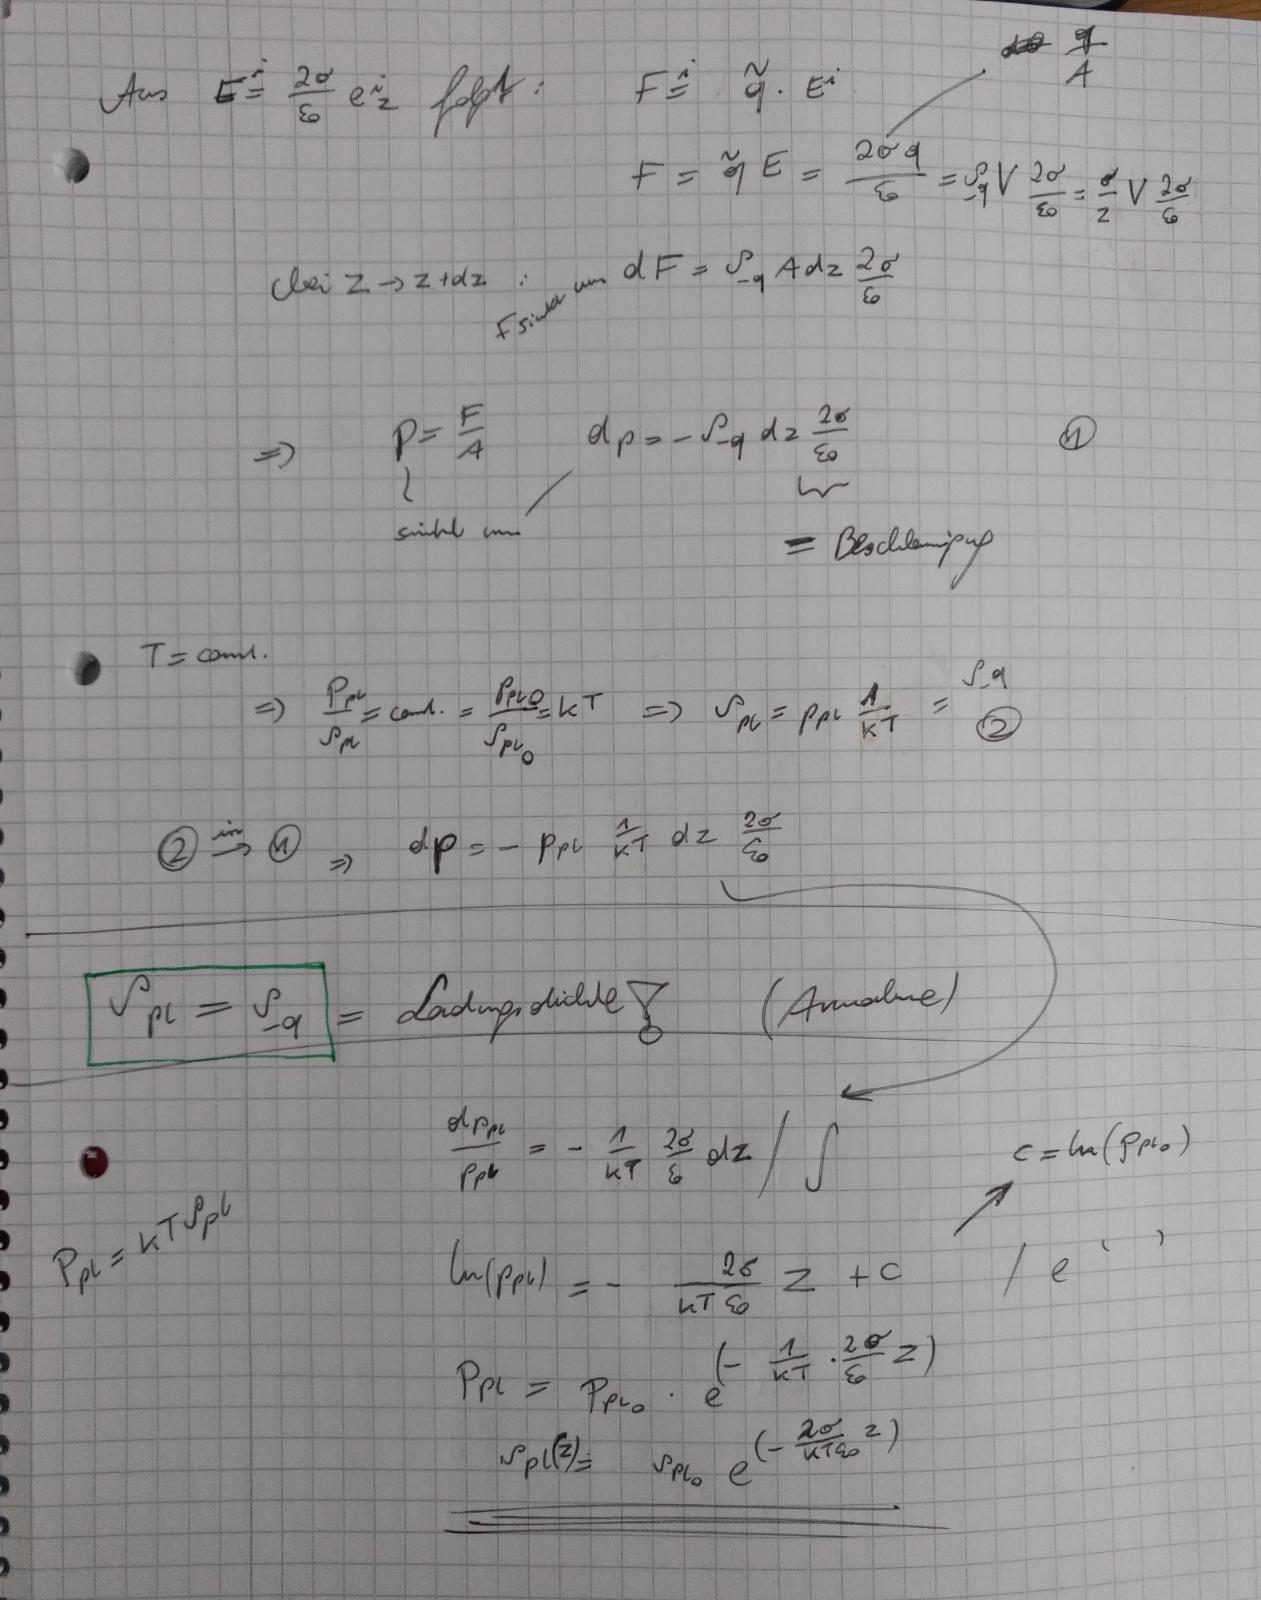 Aus E^i = 2σ/ε₀ e^i_z folgt: F^i = q̃ · E^i
q/A
F = q̃ E = 2σq/ε₀ = ρ_-q V 2σ/ε₀ = σ/z V 2σ/ε₀
bei z → z+dz : dF = ρ_-q A dz 2σ/ε₀
F sinkt um
⇒ p = F/A dp = - ρ_-q dz 2σ/ε₀ ①
sinkt um
= Beschleunigung
T = const.
⇒ p_pl/ρ_pl = const. = p_pl0/ρ_pl0 = kT ⇒ ρ_pl = p_pl 1/kT = ρ_-q
②
② in → ① ⇒ dp = - p_pl 1/kT dz 2σ/ε₀
ρ_pl = ρ_-q = Ladungsdichte! (Annahme)
dp_pl/p_pl = - 1/kT 2σ/ε₀ dz / ∫
c = ln(p_pl0)
p_pl = kT ρ_pl
ln(p_pl) = - 2σ/kTε₀ z + c / e^( )
p_pl = p_pl0 · e^(- 1/kT · 2σ/ε₀ z)
ρ_pl(z) = ρ_pl0 e^(- 2σ/kTε₀ z)